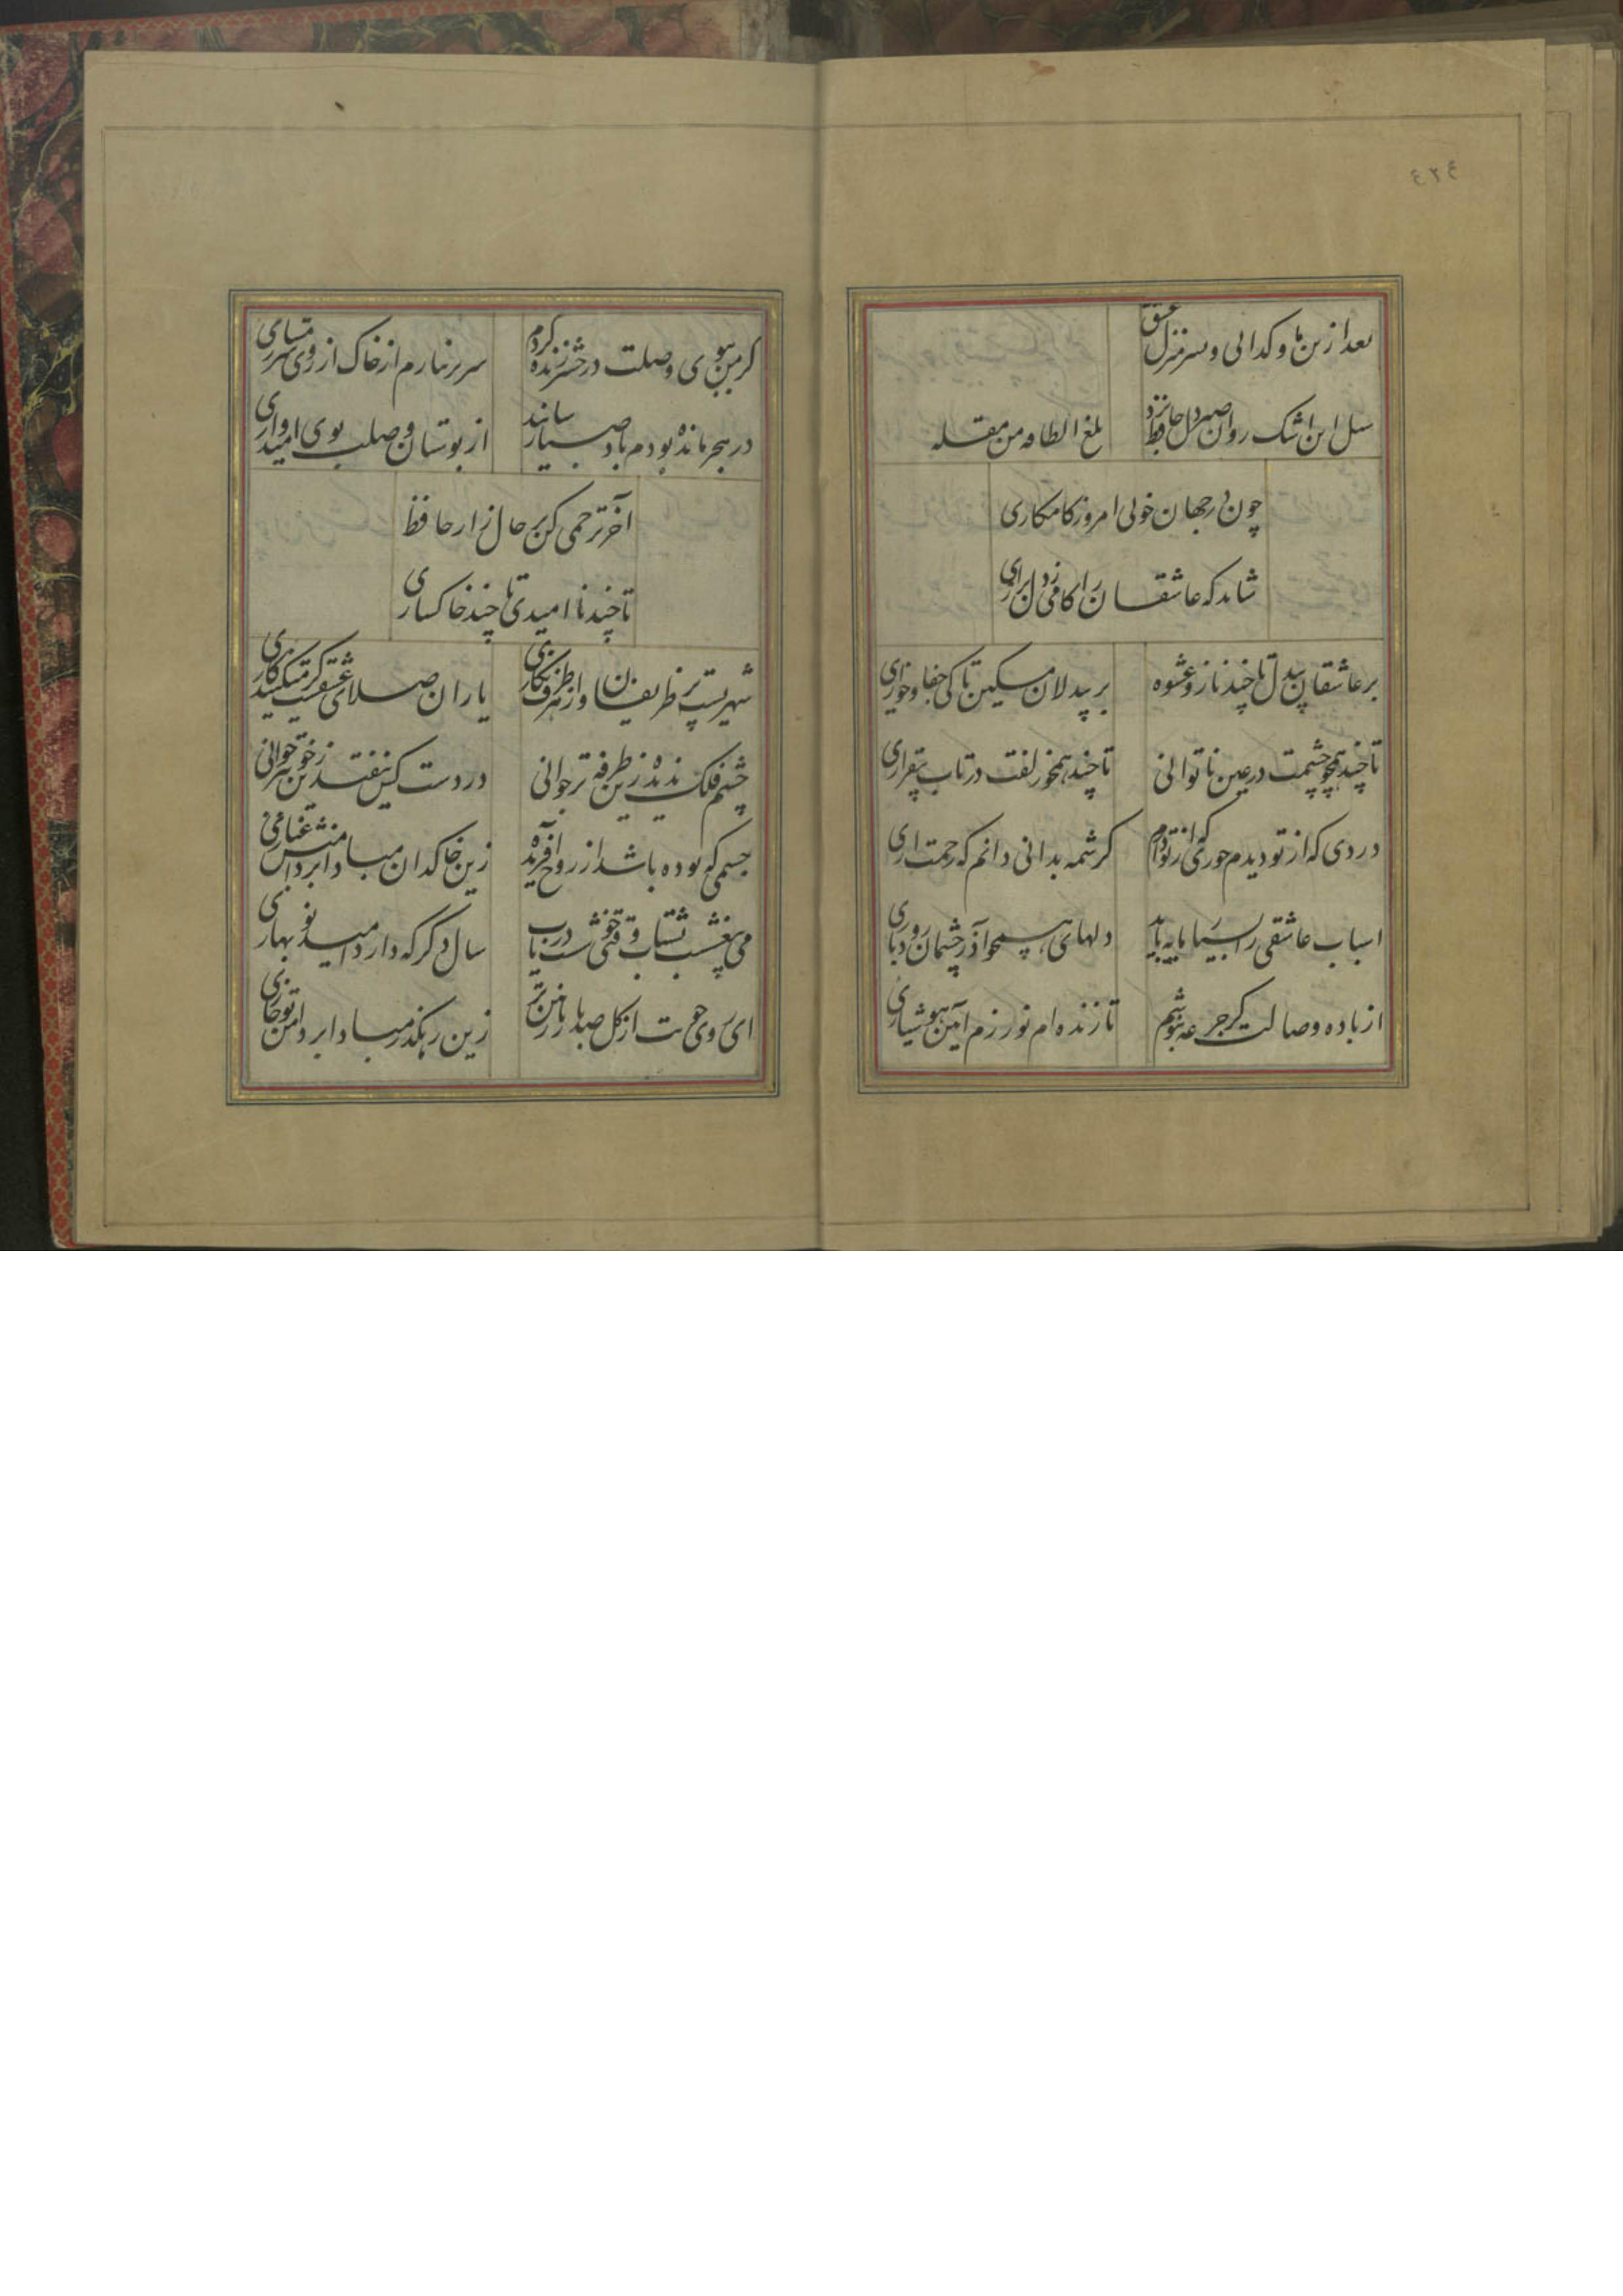 ٤٢٤
بعد ازین ما و کدائی و سر منزل عشق
سیل این اشک روان صبر دل حافظ برد
بلغ الطاقه من مقله
چون در جهان خوبی امروز کامکاری
شاید که عاشقان را کامی ز دل براری
بر عاشقان بیدل تا چند ناز و عشوه
بر بیدلان مسکین تا کی جفا و خواری
تا چند همچو چشمت در عین ناتوانی
تا چند همچو زلفت در تاب بیقراری
دردی که از تو دیدم جوری که از تو دارم
کر شمه بدانی دانم که رحمت اری
اسباب عاشقی را بسیار مایه باید
دلهای همچو آذر چشمان رودباری
از باده وصالت کر جرعه بنوشم
تا زنده ام نورزم آیین هوشیاری
کر من ببوی وصلت در حشر زنده کردم
سر بر نیارم از خاک از روی شرمساری
در هجر مانده بودم باد صبا رسانید
از بوستان وصلت بوی امیدواری
آخر ترحمی کن بر حال زار حافظ
تا چند نا امیدی تا چند خاکساری
شهریست پر ظریفان و از هر طرف نکاری
یاران صلای عشقست کر میکنید کاری
چشم فلک ندیده زین طرفه تر جوانی
در دست کس نیفتد زین خوبتر
جسمی که بوده باشد از روح آفریده
زین خاکدان مبادا بر دامنش غباری
می بیغشست بشتاب وقتی خوشست دریاب
سال دکر که دارد امید نو بهاری
ای روی خوبت از کل صد بار نازنین تر
زین رهکذر مبادا بر دامن تو خاری